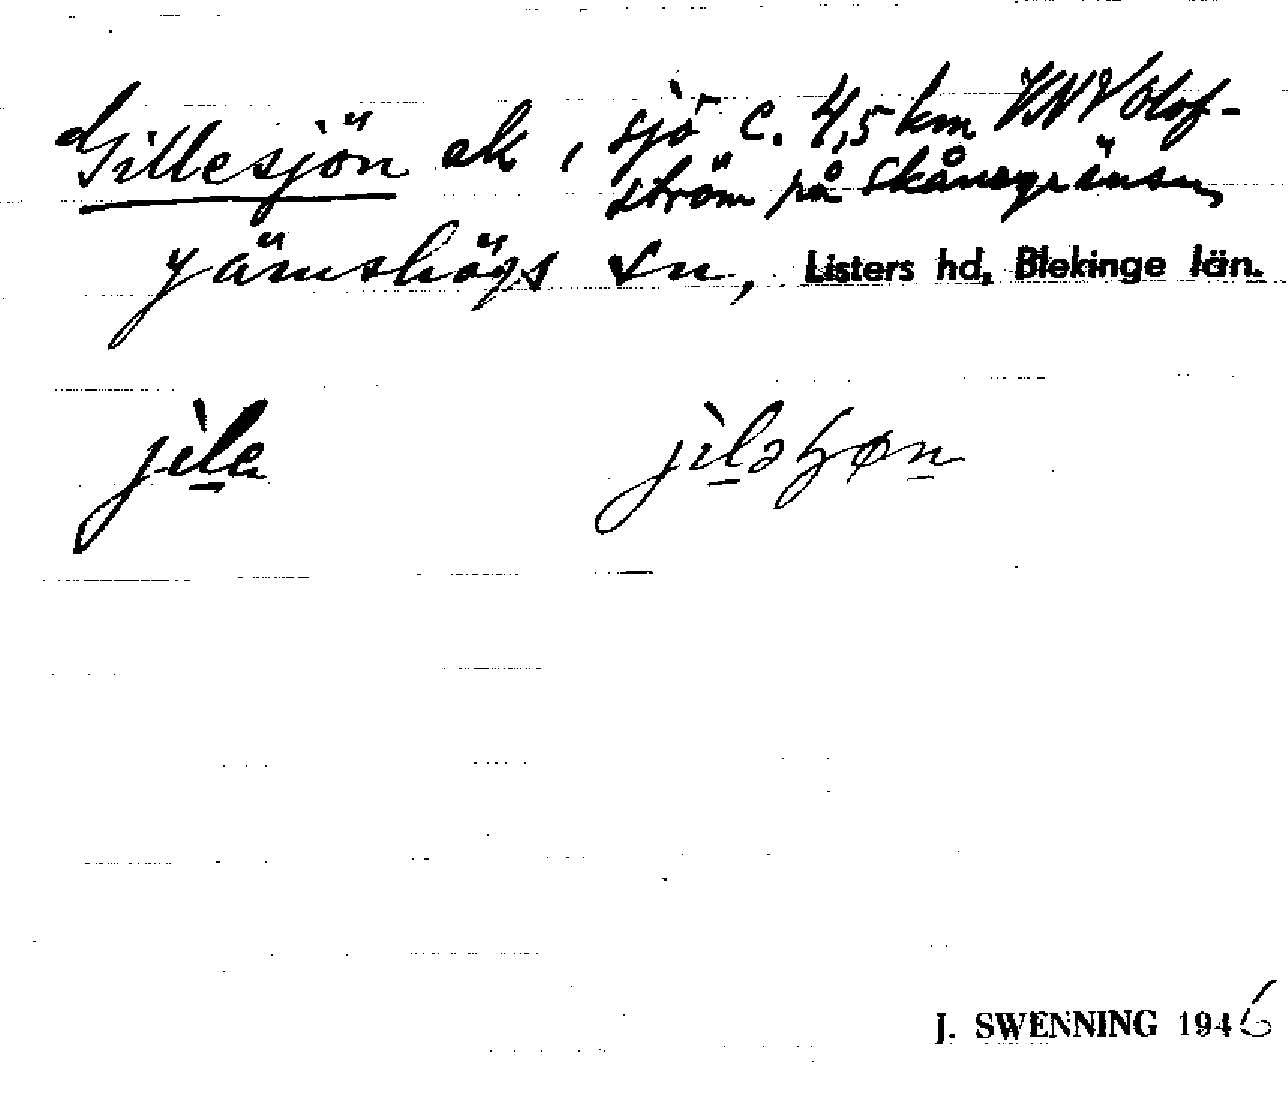 Gillesjön ek, sjö c. 4,5 km VNV Olof-
ström på Skånegränsen,
Jämshögs sn, Listers hd, Blekinge län.
jìle jìləhøn
J. SWENNING 1946